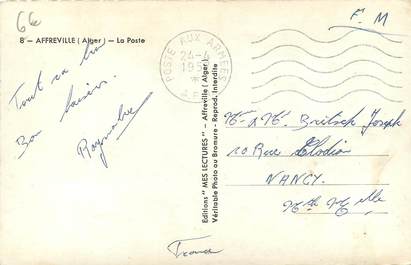 66
8 - AFFREVILLE (Alger) — La Poste
F. M
POSTE AUX ARMÉES
24-4
A.F.N
Tout va bien
Bon baiser.
Raymond
Editions "MES LECTURES" - Affreville (Alger)
Véritable Photo ou Bromure - Reprod. Interdite
Mr & Mme Britsch Joseph
10 Rue Clodion
NANCY.
Mthe Mlle
France